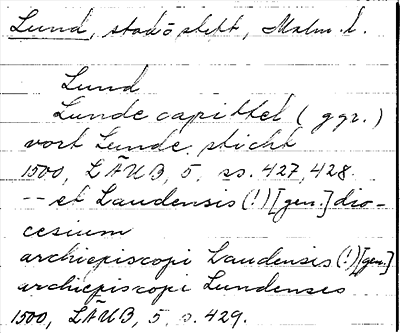 Lund, stad o slott, Malm. l.
Lund
Lunde capittel (ggr.)
vort Lunde sticht
1500, LÄUB, 5, ss. 427, 428.
-- et Laudensis (!) [gen.] dio-
cesium
archiepiscopi Laudensis (!) [gen.]
archiepiscopi Lundenses
1500, LÄUB, 5, s. 429.